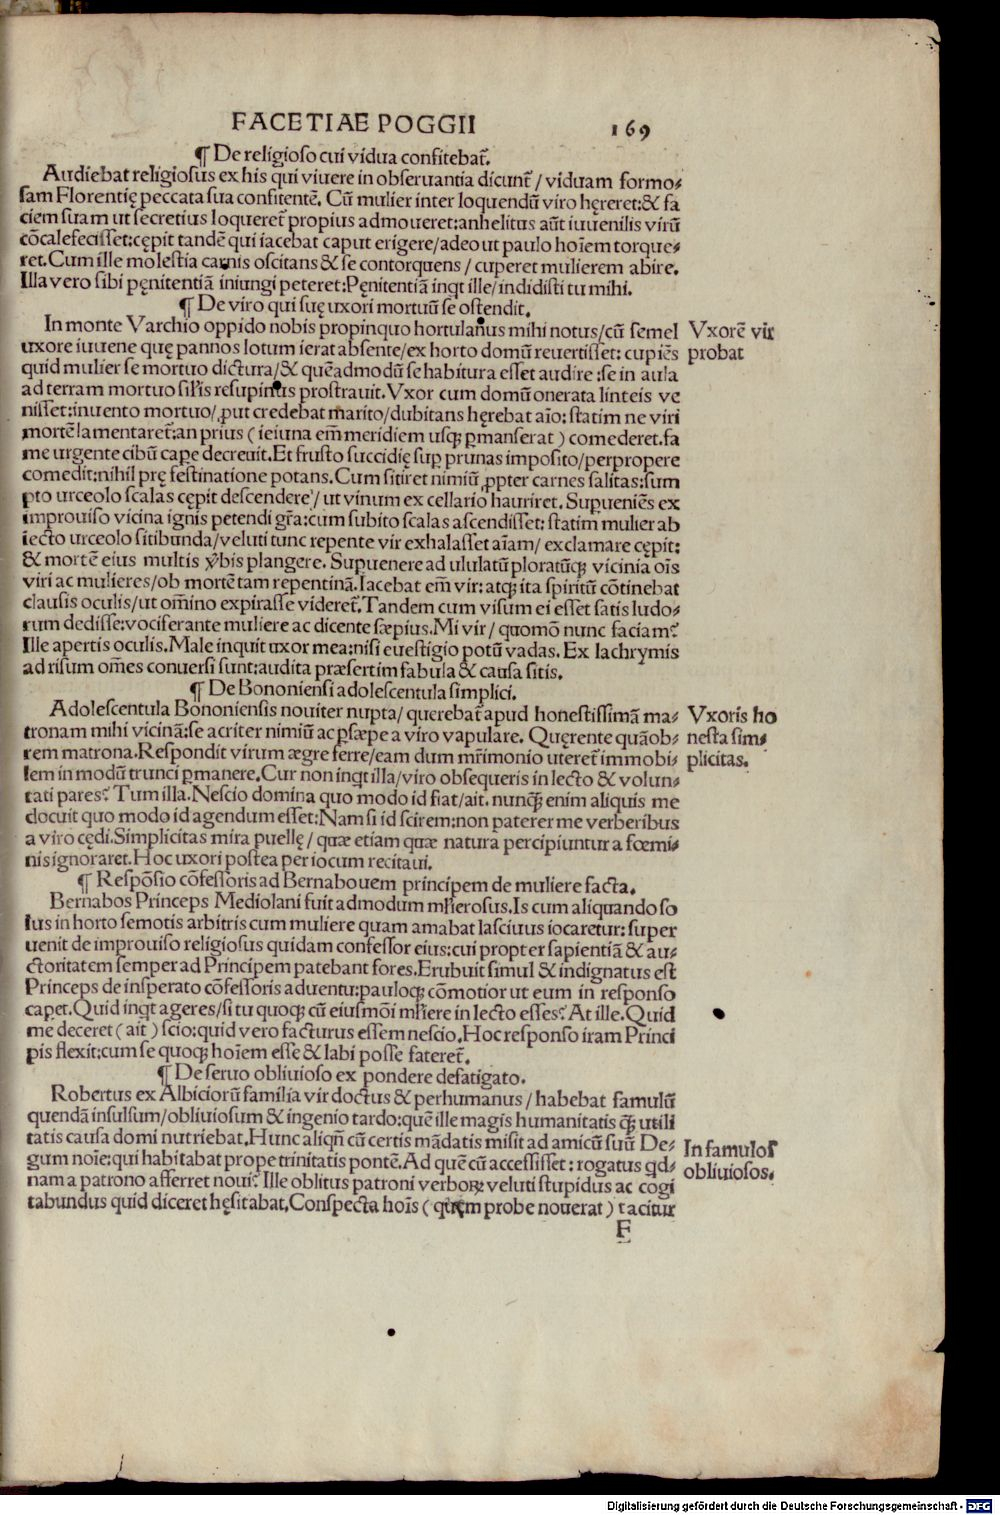 FACETIAE POGGII 169
¶ De religioso cui vidua confitebat̃.
Audiebat religiosus ex his qui viuere in obseruantia dicunt̃ / viduam formo⸗
sam Florentię peccata sua confitentē. Cū mulier inter loquendū viro hęreret:& fa
ciem suam ut secretius loqueret̃ propius admoueret:anhelitus aūt iuuenilis virū
cōcalefecisset:cępit tandē qui iacebat caput erigere/adeo ut paulo hoīem torque⸗
ret. Cum ille molestia carnis oscitans & se contorquens / cuperet mulierem abire.
Illa vero sibi pęnitentiā iniungi peteret:Pęnitentiā inqt ille/indidisti tu mihi.
¶ De viro qui suę uxori mortuū se ostendit.
In monte Varchio oppido nobis propinquo hortulanus mihi notus/cū semel
Vxorē vir
uxore iuuene quę pannos lotum ierat absente/ex horto domū reuertisset: cupiēs
probat
quid mulier se mortuo dictura/& quēadmodū se habitura esset audire :se in aula
ad terram mortuo sił̃is resupinus prostrauit. Vxor cum domū onerata linteis ve
nisset:inuento mortuo/ꝓut credebat marito/dubitans hęrebat aīo: statim ne viri
mortē lamentaret̃:an prius ( ieiuna em̄ meridiem usqꝫ ꝑmanserat ) comederet.fa
me urgente cibū capeꝛ decreuit.Et frusto succidię suꝑ prunas imposito/perpropere
comedit:nihil prę festinatione potans. Cum sitiret nimiū ꝓpter carnes salitas:sum
pto urceolo scalas cępit descendere / ut vinum ex cellario hauriret. Supueniēs ex
improuiso vicina ignis petendi gr̃a:cum subito scalas ascendisset: statim mulier ab
iecto urceolo sitibunda/veluti tunc repente vir exhalasset aīam/ exclamare cępit:
& mortē eius multis v̓bis plangere. Supuenere ad ululatū ploratūqꝫ vicinia oīs
viri ac mulieres/ob mortē tam repentinā. Iacebat em̄ vir: atqꝫ ita spiritū cōtinebat
clausis oculis/ut om̄ino expirasse videret̃. Tandem cum visum ei esset satis ludo⸗
rum dedisse:vociferante muliere ac dicente sæpius. Mi vir/ quomō nunc faciam?
Ille apertis oculis. Male inquit uxor mea:nisi euestigio potū vadas. Ex lachrymis
ad risum om̄es conuersi sunt:audita præsertim fabula & causa sitis.
¶ De Bononiensi adolescentula simplici.
Adolescentula Bononiensis nouiter nupta/ querebat̃ apud honestissimā ma⸗
Vxoris ho
tronam mihi vicinā:se acriter nimiū ac ꝑsæpe a viro vapulare. Quęrente quāob⸗
nesta sim⸗
rem matrona. Respondit virum ægre ferre/eam dum mr̃imonio uteret̃ immobi⸗
plicitas.
lem in modū trunci ꝑmanere. Cur non inqt illa/viro obsequeris in lecto & volun⸗
tati pares? Tum illa. Nescio domina quo modo id fiat/ait. nunqꝫ̄ enim aliquis me
docuit quo modo id agendum esset: Nam si id scirem:non paterer me verberibus
a viro cędi. Simplicitas mira puellę/ quæ etiam quæ natura percipiuntur a fœmi⸗
nis ignoraret. Hoc uxori postea per iocum recitaui.
¶ Respōsio cōfessoris ad Bernabouem principem de muliere facta.
Bernabos Princeps Mediolani fuit admodum ml̓ierosus. Is cum aliquando so
lus in horto semotis arbitris cum muliere quam amabat lasciuus iocaretur: super
uenit de improuiso religiosus quidam confessor eius: cui propter sapientiā & au⸗
ctoritatem semper ad Principem patebant fores. Erubuit simul & indignatus est
Princeps de insperato cōfessoris aduentu:pauloqꝫ cōmotior ut eum in responso
caꝑet. Quid inqt ageres/si tu quoqꝫ cū eiusmōi ml̓iere in lecto esses? At ille. Quid
me deceret ( ait ) scio:quid vero facturus essem nescio. Hoc responso iram Princi
pis flexit:cum se quoqꝫ hoīem esse & labi posse fateret̃.
¶ De seruo obliuioso ex pondere defatigato.
Robertus ex Albiciorū familia vir doctus & perhumanus / habebat famulū
quendā insulsum/obliuiosum & ingenio tardo:quē ille magis humanitatis qꝫ̄ utili
tatis causa domi nutriebat. Hunc aliqn̄ cū certis mādatis misit ad amicū suū De⸗
In famulos
gum noīe:qui habitabat prope trinitatis pontē. Ad quē cū accessisset : rogatus qd⸗
obliuiosos.
nam a patrono afferret noui? Ille oblitus patroni verboꝝ veluti stupidus ac cogi
tabundus quid diceret hęsitabat. Conspecta hoīs ( quem probe nouerat ) tacitur
F
Digitalisierung gefördert durch die Deutsche Forschungsgemeinschaft - DFG